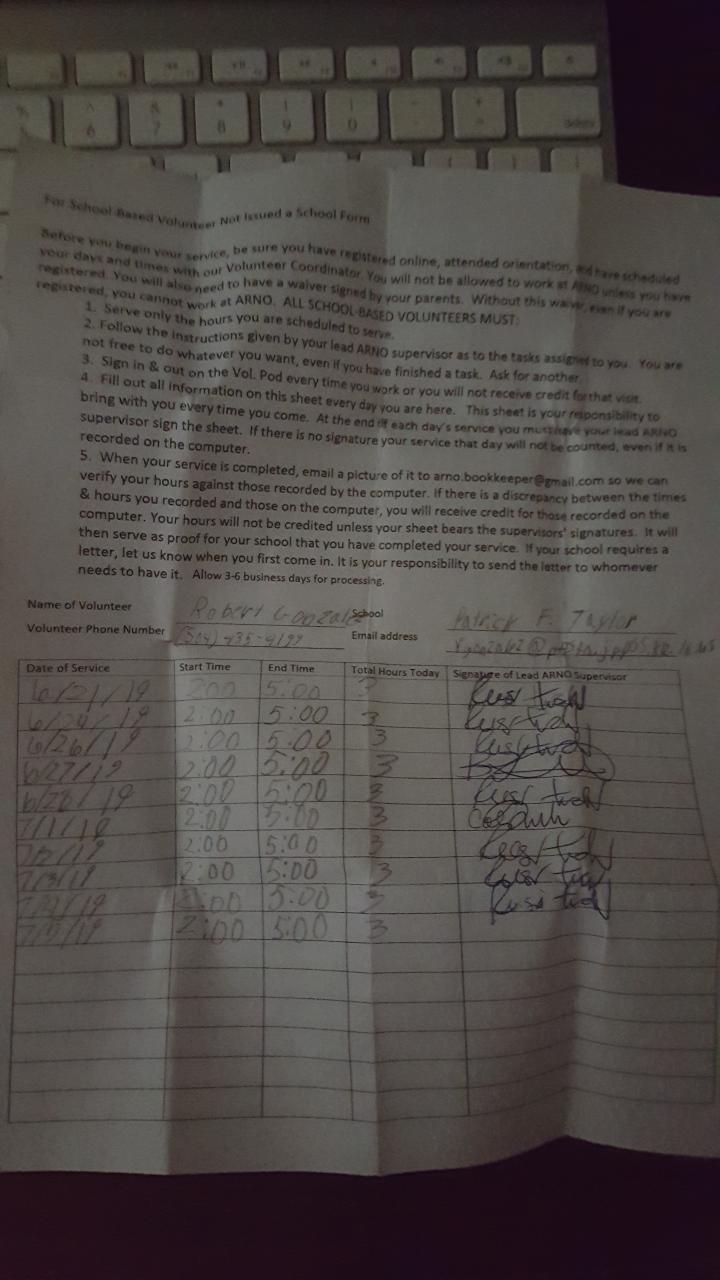 For School-Based Volunteer Not Issued a School Form
Before you begin your service, be sure you have registered online, attended orientation, and have scheduled
your days and times with our Volunteer Coordinator. You will not be allowed to work at ARNO unless you have
registered. You will also need to have a waiver signed by your parents. Without this waiver, even if you are
registered, you cannot work at ARNO. ALL SCHOOL-BASED VOLUNTEERS MUST:
1. Serve only the hours you are scheduled to serve.
2. Follow the instructions given by your lead ARNO supervisor as to the tasks assigned to you. You are
not free to do whatever you want, even if you have finished a task. Ask for another.
3. Sign in & out on the Vol. Pod every time you work or you will not receive credit for that visit.
4. Fill out all information on this sheet every day you are here. This sheet is your responsibility to
bring with you every time you come. At the end of each day's service you must have your lead ARNO
supervisor sign the sheet. If there is no signature your service that day will not be counted, even if it is
recorded on the computer.
5. When your service is completed, email a picture of it to arno.bookkeeper@gmail.com so we can
verify your hours against those recorded by the computer. If there is a discrepancy between the times
& hours you recorded and those on the computer, you will receive credit for those recorded on the
computer. Your hours will not be credited unless your sheet bears the supervisors' signatures. It will
then serve as proof for your school that you have completed your service. If your school requires a
letter, let us know when you first come in. It is your responsibility to send the letter to whomever
needs to have it. Allow 3-6 business days for processing.
Name of Volunteer Robert Gonzalez School Patrick F. Taylor
Volunteer Phone Number (504) 435-4199 Email address
Date of Service Start Time End Time Total Hours Today Signature of Lead ARNO Supervisor
6/21/19 2:00 5:00 3
6/24/19 2:00 5:00 3
6/26/19 2:00 5:00 3
6/27/19 2:00 5:00 3
6/28/19 2:00 5:00 3
7/1/19 2:00 5:00 3
7/2/19 2:00 5:00 3
7/3/19 2:00 5:00 3
2:00 5:00 3
2:00 5:00 3